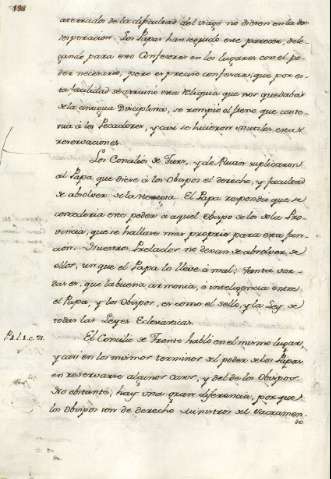 198
aterrados de la dificultad del viage no diesen en la de-
sesperacion. Los Papas han seguido este parecer, dele-
gando para esto Confesores en los lugares con el po-
der necesario, pero es preciso confesar, que por es-
ta facilidad se arruinó esta Reliquia que nos quedaba
de la antigua Disciplina, se rompió el freno que conte-
nia à los Pecadores, y casi se hicieron inutiles estas
reservaciones.
Los Concilios de Turs, y de Ruan suplicaron
al Papa que diese à los Obispos el derecho, y facultad
de absolver de la Heregia. El Papa respondió que se
concederia este poder à aquel Obispo de los de la Pro-
vincia, que se hallase mas proprio para esta fun-
cion. Nuestros Prelados no dexan de absolver de
ellos, aunque el Papa lo lleve à mal; tanto ver-
dad es, que la buena armonia, è inteligencia entre
el Papa, y los Obispos, es como el sello, y la Ley de
todas las Leyes Eclesiasticas.
El Concilio de Trento habló en el mismo lugar,
y casi en los mismos terminos del poder de los Papas
en reservarse algunos casos, y del de los Obispos.
No obstante, hay una gran diferencia, porque
los Obispos son de derecho Ministros del Sacramen-
to